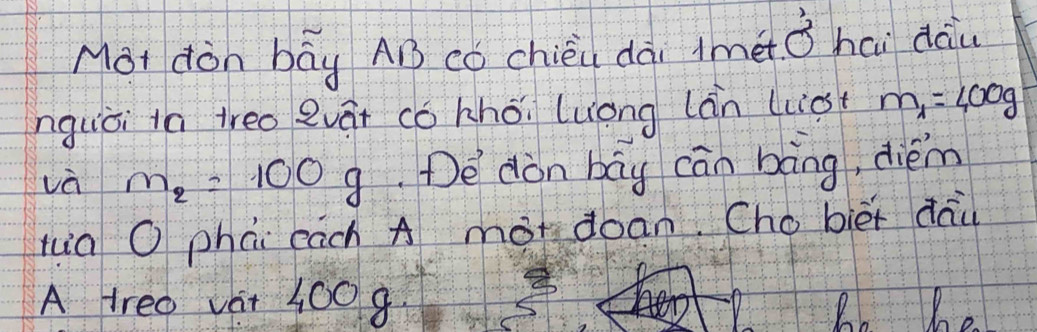 Một đòn bẫy AB có chiều dài 1mét. Ở hai đầu
người ta treo 2 vật có khối lượng lần lượt m₁ = 400g
và m₂ = 100 g. Để đòn bẫy cân bằng, điểm
tựa O phải cách A một đoạn. Cho biết đầu
A treo vật 400 g.